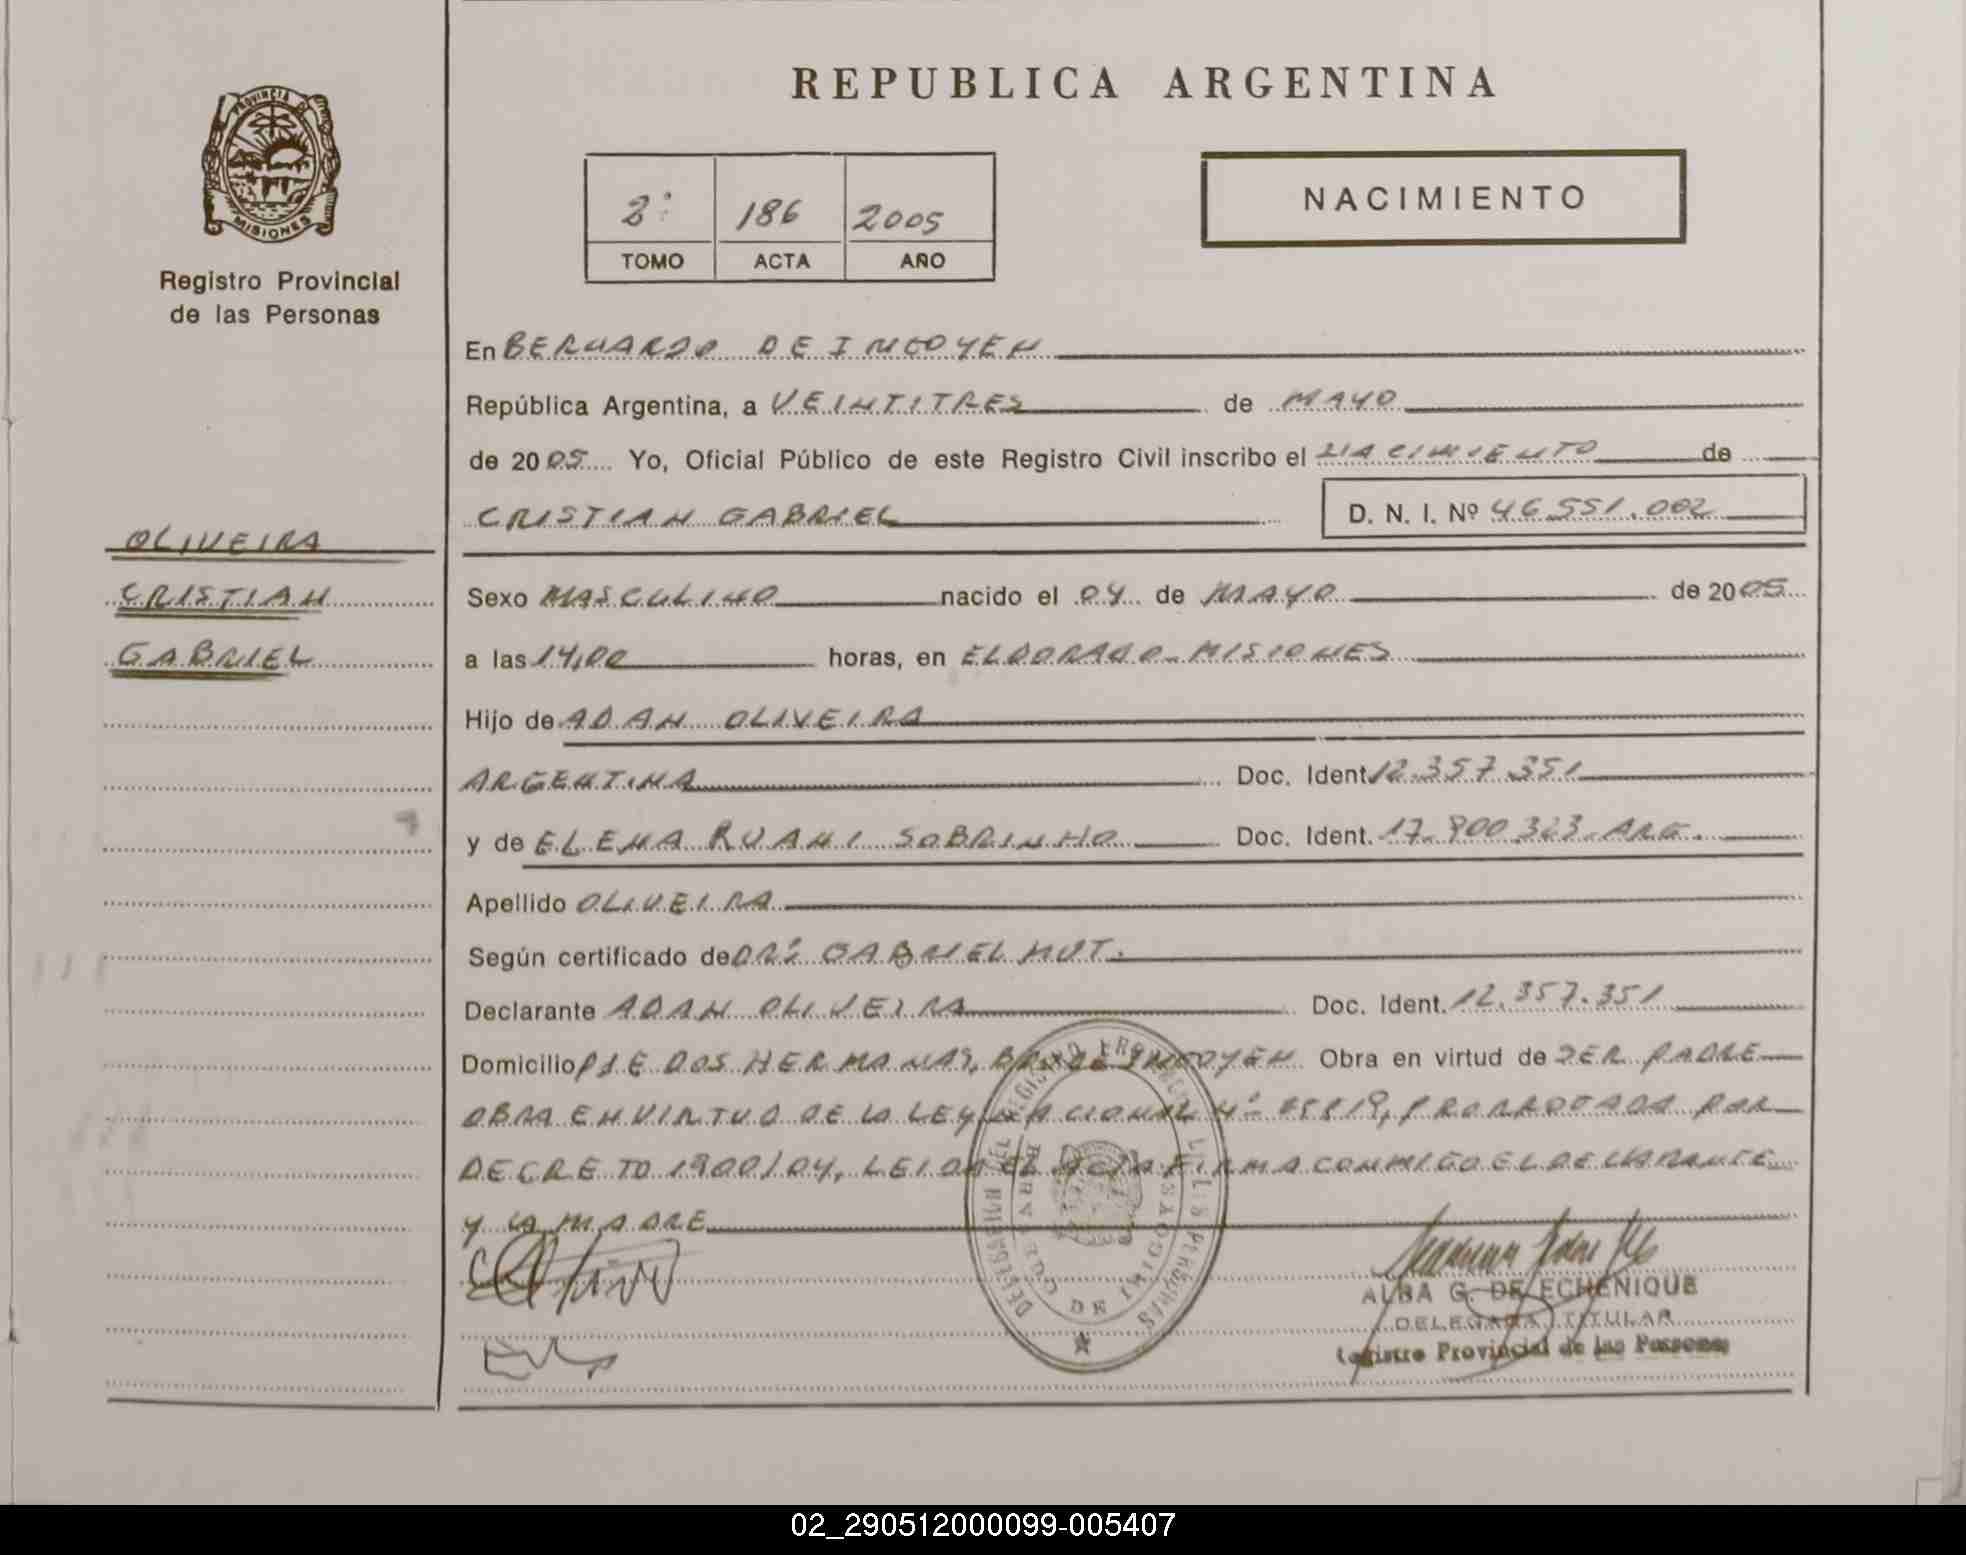 REPUBLICA ARGENTINA
PROVINCIA DE
MISIONES
Registro Provincial
de las Personas
2º 186 2005
TOMO ACTA AÑO
NACIMIENTO
En BERNARDO DE IRIGOYEN
República Argentina, a VEINTITRES de MAYO
de 2005 Yo, Oficial Público de este Registro Civil inscribo el NACIMIENTO de
CRISTIAN GABRIEL D. N. I. Nº 46.551.002
OLIVEIRA
CRISTIAN
GABRIEL
Sexo MASCULINO nacido el 04 de MAYO de 2005
a las 14,00 horas, en ELDORADO-MISIONES
Hijo de ADAN OLIVEIRA
ARGENTINA Doc. Ident. 12.357.351
y de ELENA RUANI SOBRINHO Doc. Ident. 17.900.323-ARG.
Apellido OLIVEIRA
Según certificado de DR: GABRIEL
Declarante ADAN OLIVEIRA Doc. Ident. 12.357.351
Domicilio PJE DOS HERMANAS, BDO DE IRIGOYEN Obra en virtud de SER PADRE
OBRA EN VIRTUD DE LA LEY NACIONAL Nº 25819, PRORROGADA POR
DECRETO 1900/04, LEIDA EL ACTA FIRMA CONMIGO EL DECLARANTE
Y LA MADRE
BERNARDO DE IRIGOYEN
ALBA G. DE ECHENIQUE
DELEGADA TITULAR
Registro Provincial de las Personas
02_290512000099-005407